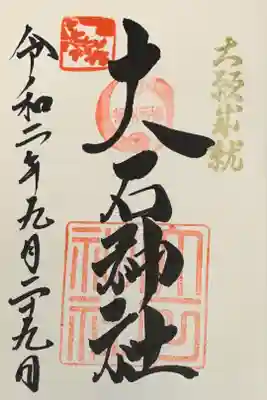 大願成就
大石神社
令和二年九月二十九日